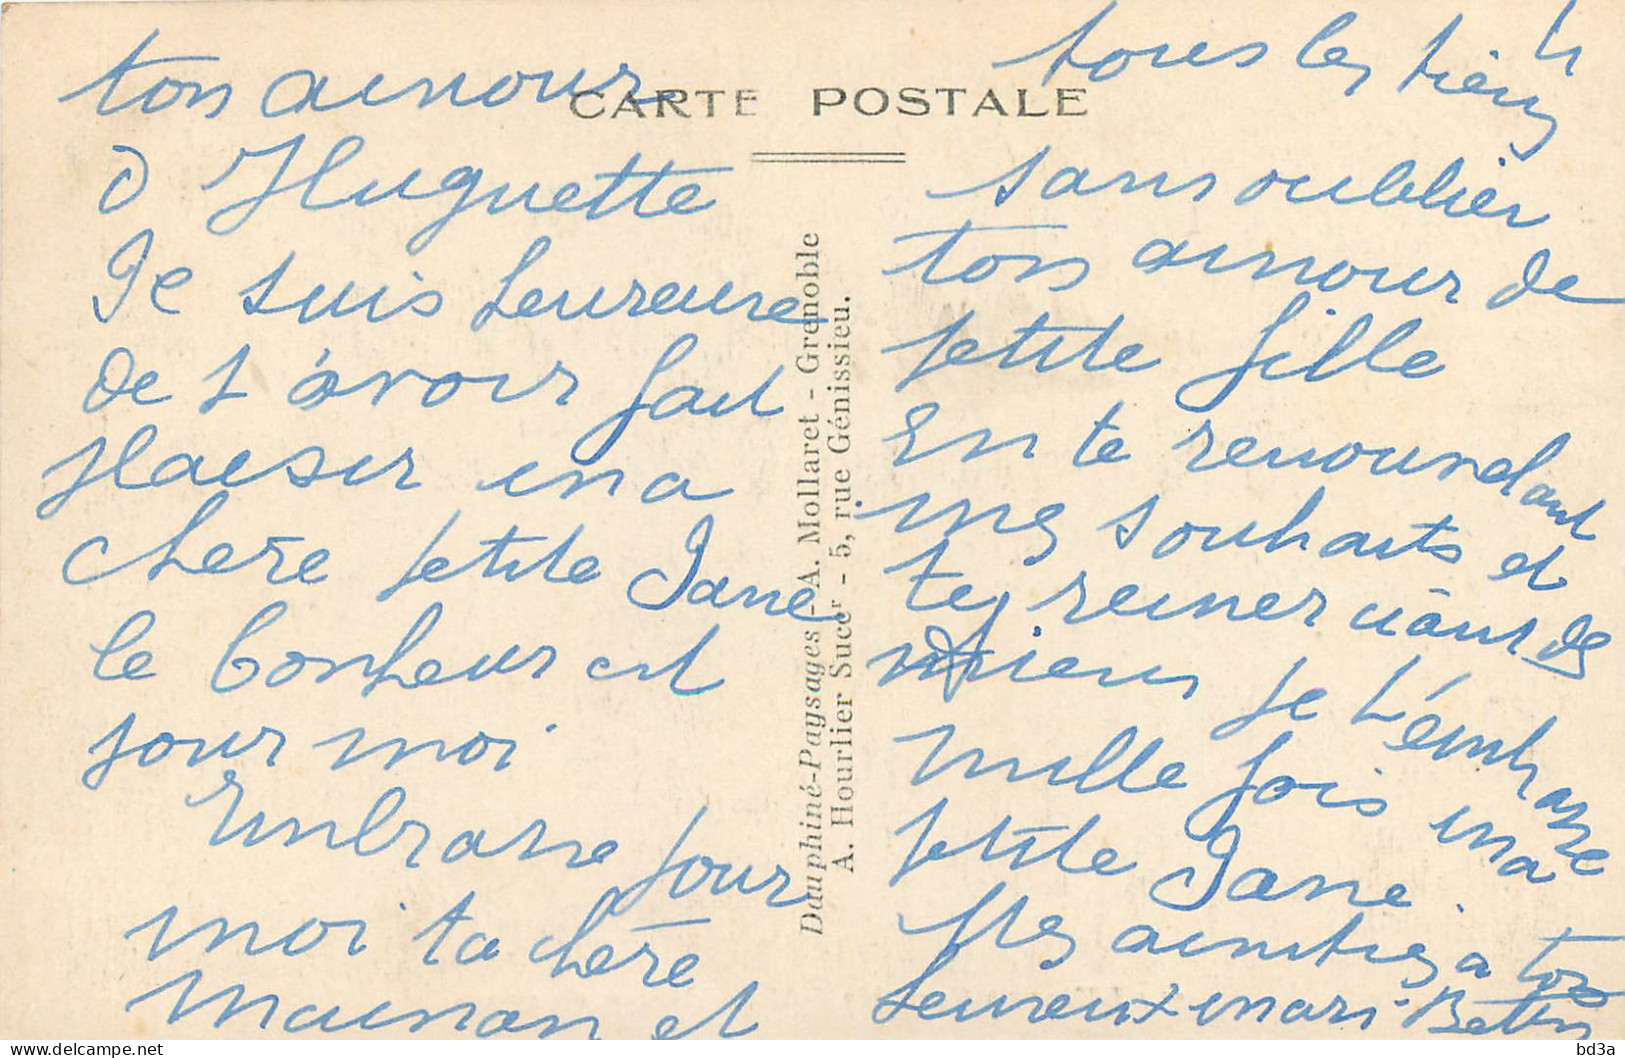 ton amour
d'Huguette
Je suis heureuse
de t'avoir fait
plaisir ma
chère petite Jane
le bonheur est
pour moi
Embrasse pour
moi ta chère
maman et
CARTE POSTALE
Dauphiné-Paysages - A. Mollaret - Grenoble
A. Hourlier Succr - 5, rue Génissieu.
tous les tiens
sans oublier
ton amour de
petite fille
En te renouvelant
mes souhaits et
te remerciant des
miens je t'embrasse
mille fois ma
petite Jane.
Mes amitiés à ton
heureux mari. Betty
bd3a